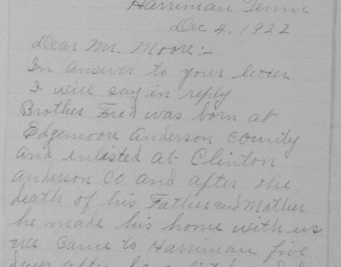 Harriman Tenn
Dec 4, 1922
Dear Mr. Moore:-
In answer to your letter
I will say in reply
Brother Fred was born at
Edgemoore Anderson County
and enlisted at Clinton
Anderson Co and after the
death of his Father and Mother
he made his home with us
we came to Harriman five
after